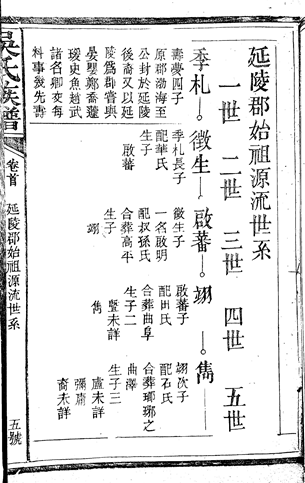 延陵郡始祖源流世系
一世 二世 三世 四世 五世
季札 徵生 啟蕃 翊 雋
壽夢四子
原郡渤海至
公封於延陵
後裔又以延
陵爲郡嘗與
晏嬰鄭喬蘧
瑗史魚趙武
諸名卿交每
料事先蓍
季札長子
配華氏
生子
啟蕃
徵生子
一名啟明
配叔孫氏
合葬高平
生子
翊
啟蕃子
配田氏
合葬曲阜
生子二
豎未詳
雋
翊次子
配石氏
合葬瑯琊之
曲澤
生子三
盧未詳
彌庸
裔未詳
吳氏族譜
卷首
延陵郡始祖源流世系
五號